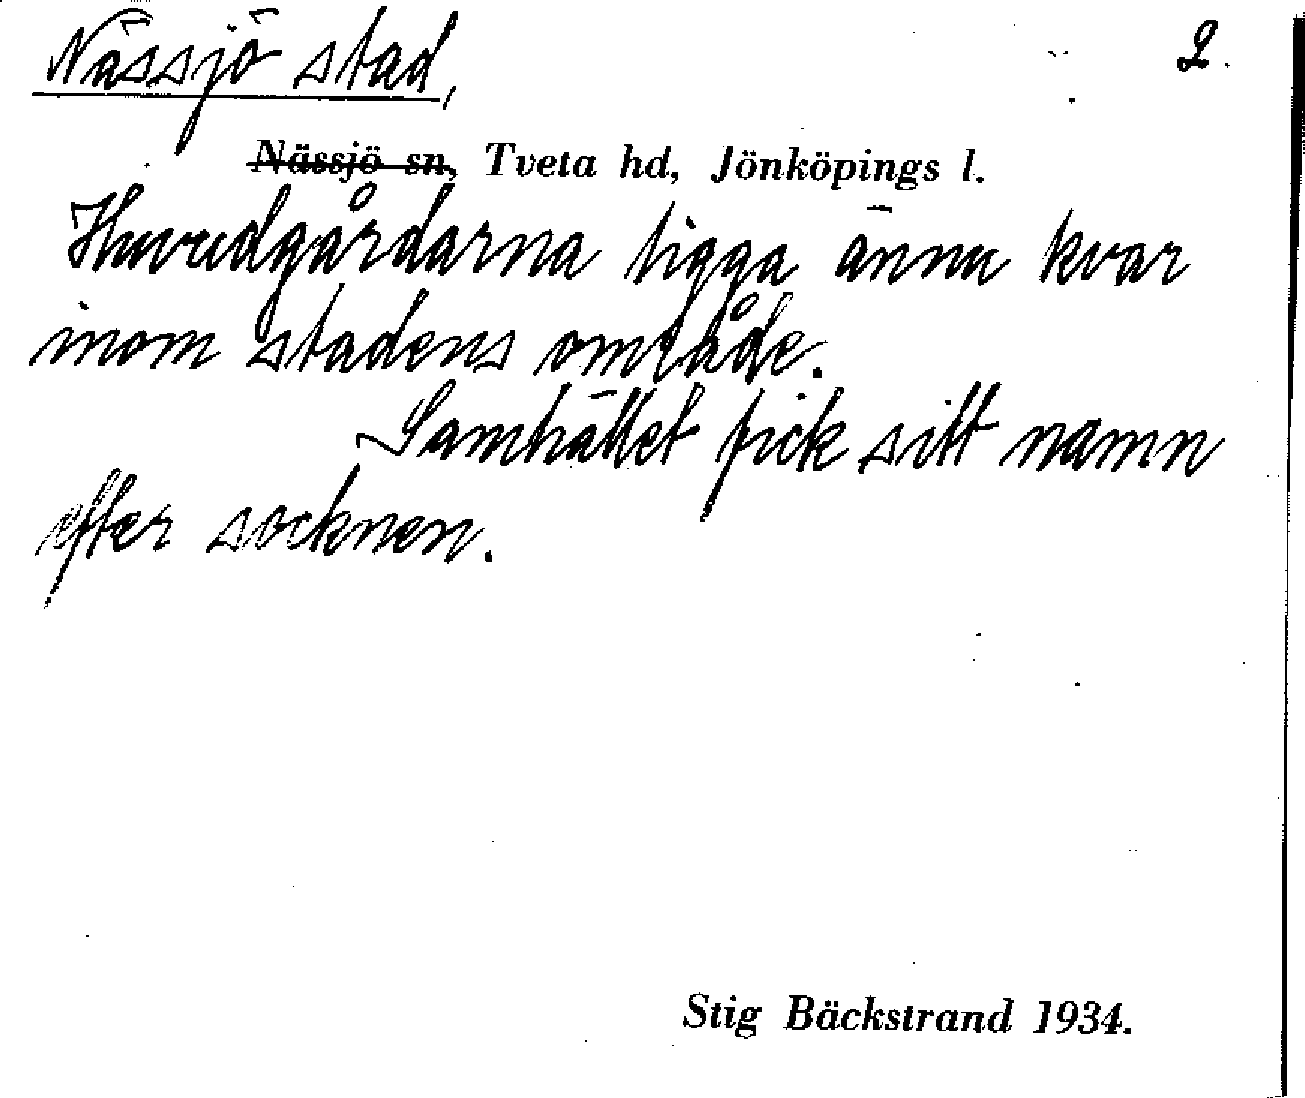 Nässjö stad,
2.
Nässjö sn, Tveta hd, Jönköpings l.
Huvudgårdarna ligga ännu kvar
inom stadens område.
Samhället fick sitt namn
efter socknen.
Stig Bäckstrand 1934.